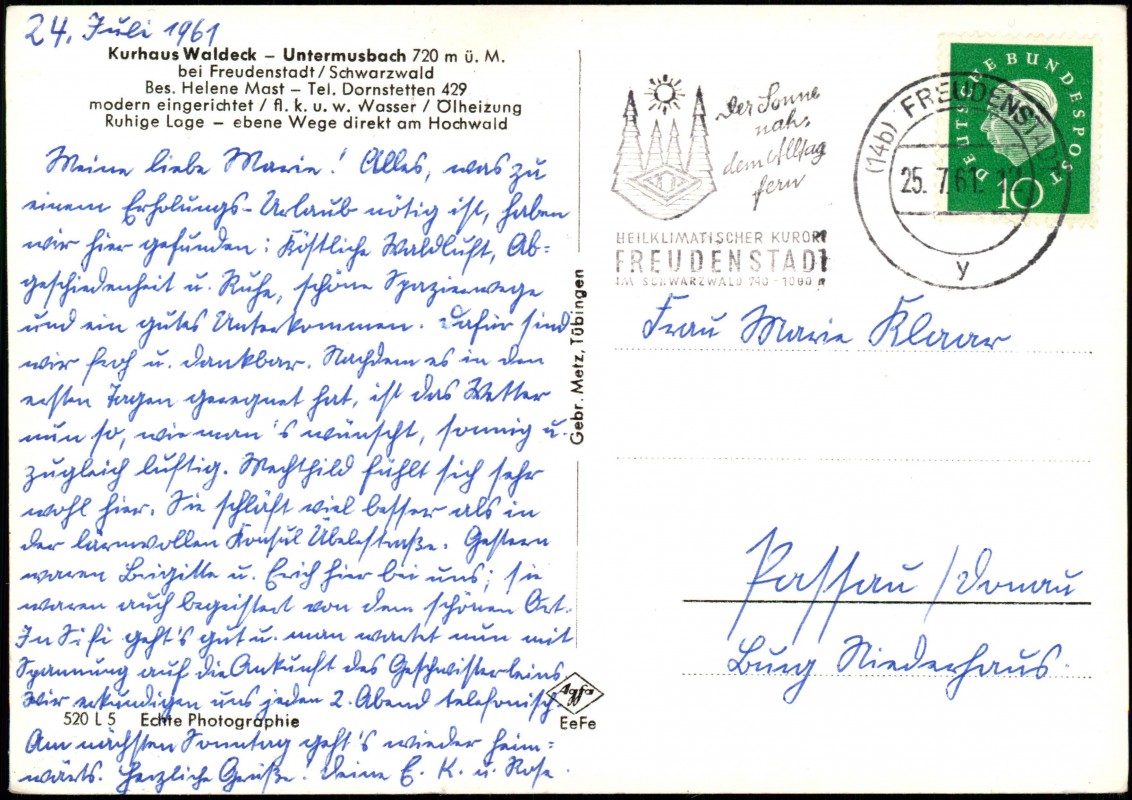 24. Juli 1961
Kurhaus Waldeck – Untermusbach 720 m ü. M.
bei Freudenstadt / Schwarzwald
Bes. Helene Mast – Tel. Dornstetten 429
modern eingerichtet / fl. k. u. w. Wasser / Ölheizung
Ruhige Lage – ebene Wege direkt am Hochwald
Meine liebe Marie! Alles, was zu
einem Erholungs-Urlaub nötig ist, haben
wir hier gefunden: Köstliche Waldluft, Ab-
geschiedenheit u. Ruhe, schöne Spazierwege
und ein gutes Unterkommen. Dafür sind
wir froh u. dankbar. Nachdem es in den
ersten Tagen geregnet hat, ist das Wetter
nun so, wie man's wünscht, sonnig u.
zugleich luftig. Mechthild fühlt sich sehr
wohl hier. Sie schläft viel besser als in
der lärmvollen Konsul Übelestraße. Gestern
waren Brigitte u. Erich hier bei uns; sie
waren auch begeistert von dem schönen Ort.
In Sifi geht's gut u. man wartet nun mit
Spannung auf die Ankunft des Geschwisterleins.
Wir erkundigen uns jeden 2. Abend telefonisch.
520 L 5 Echte Photographie
Am nächsten Sonntag geht's wieder heim-
wärts. Herzliche Grüße! Deine E. K. u. Rose.
Gebr. Metz, Tübingen
Agfa
EeFe
Der Sonne
nah,
dem Alltag
fern
HEILKLIMATISCHER KURORT
FREUDENSTADT
IM SCHWARZWALD 740-1000 m
(14b) FREUDENSTADT
25. 7. 61.
y
DEUTSCHE BUNDESPOST
10
Frau Marie Klaar
Passau / Donau
Burg Niederhaus.